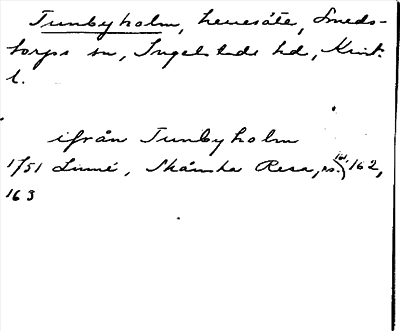 Tunbyholm, herresäte, Smeds-
torps sn, Ingelstads hd, Krist.
l.
ifrån Tunbyholm
1751 Linné, Skånska Resa, s. 161, 162,
163